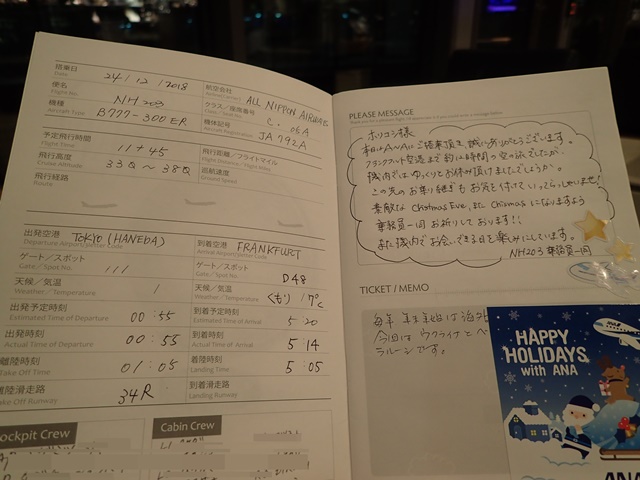 搭乗日
Date
24/12/2018
航空会社
ALL NIPPON AIRWAYS
便名
Flight No.
NH203
クラス/座席番号
C. 05A
機種
Aircraft Type
B777-300ER
機体記号
Aircraft Registration
JA792A
予定飛行時間
Flight Time
11+45
飛行距離/フライトマイル
飛行高度
Cruise Altitude
33Q~38Q
巡航速度
Ground Speed
飛行経路
Route
出発空港
TOKYO (HANEDA)
到着空港
FRANKFURT
ゲート/スポット
Gate/Spot No.
111
ゲート/スポット
Gate/Spot No.
D48
天候/気温
Weather/Temperature
/
天候/気温
Weather/Temperature
くもり/7℃
出発予定時刻
Estimated Time of Departure
00:55
到着予定時刻
Estimated Time of Arrival
5:20
出発時刻
Actual Time of Departure
00:55
到着時刻
Actual Time of Arrival
5:14
離陸時刻
Take Off Time
01:05
着陸時刻
Landing Time
5:05
離陸滑走路
Take Off Runway
34R
到着滑走路
Landing Runway
Cockpit Crew
Cabin Crew
PLEASE MESSAGE
ホリコシ様
本日はANAにご搭乗頂き誠にありがとうございます。
フランクフルト空港まで約12時間の空の旅でしたが、
機内ではゆっくりとお休み頂けましたでしょうか。
この先のお乗り継ぎもお気を付けていってらっしゃいませ!
素敵なChristmas Eve、また Christmasになりますよう
乗務員一同お祈りしております!!
また機内でお会いできる日を楽しみにしています。
NH203 乗務員一同
TICKET / MEMO
毎年 年末年始は海外
今回は ウクライナとベ
ラルーシです。
HAPPY
HOLIDAYS
with ANA
ANA